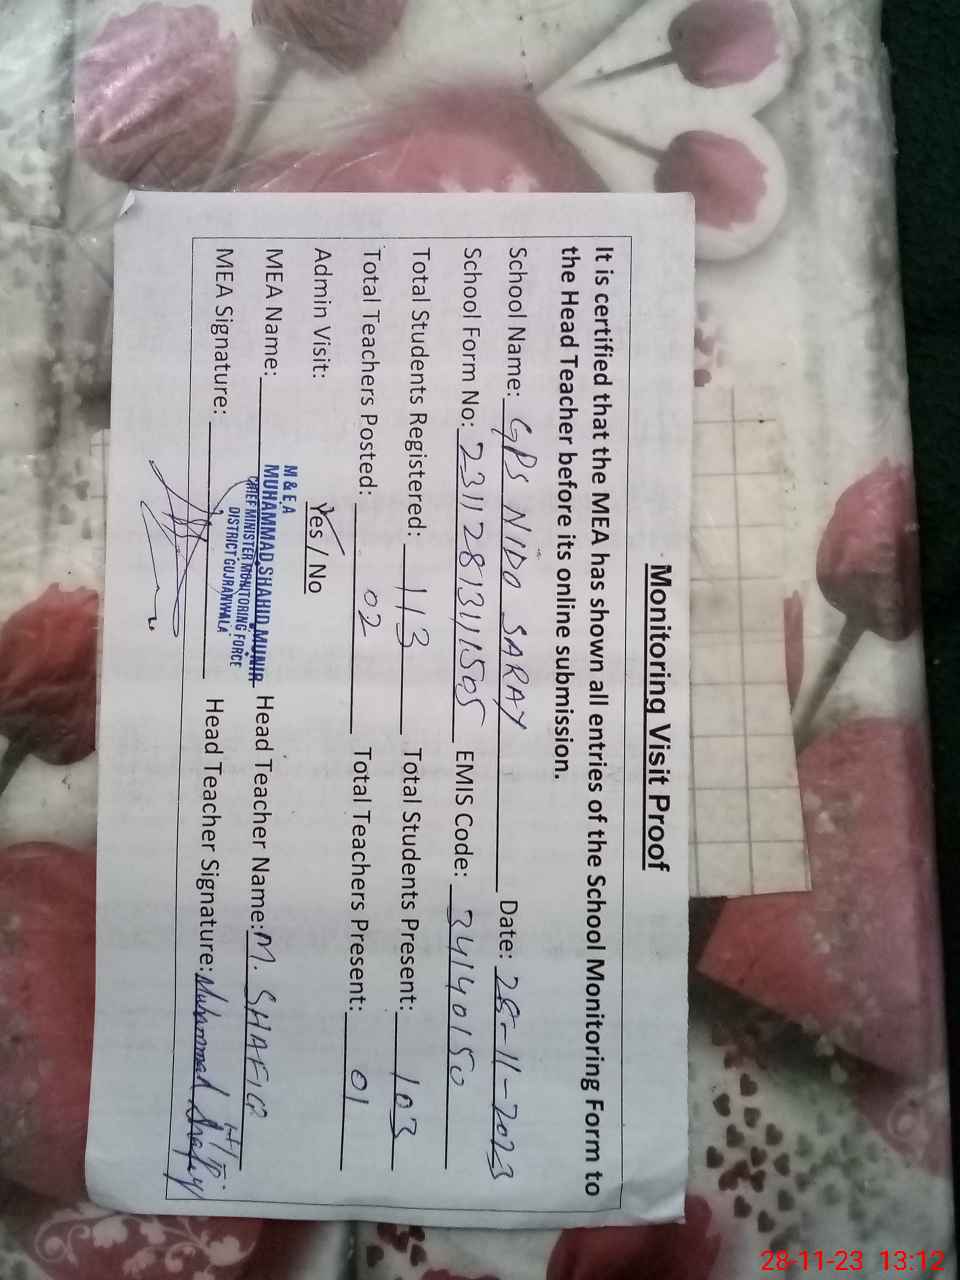 Monitoring Visit Proof
It is certified that the MEA has shown all entries of the School Monitoring Form to
the Head Teacher before its online submission.
School Name: GPS NIDO SARAY Date: 28-11-2023
School Form No: 23112813111505 EMIS Code: 34140150
Total Students Registered: 113 Total Students Present: 103
Total Teachers Posted: 02 Total Teachers Present: 01
Admin Visit: Yes / No
M & E.A
MEA Name: MUHAMMAD SHAHID MUNIR Head Teacher Name: M. SHAFIQ
CHIEF MINISTER MONITORING FORCE
DISTRICT GUJRANWALA
MEA Signature: Head Teacher Signature: Muhammad Shafiq
28-11-23 13:12